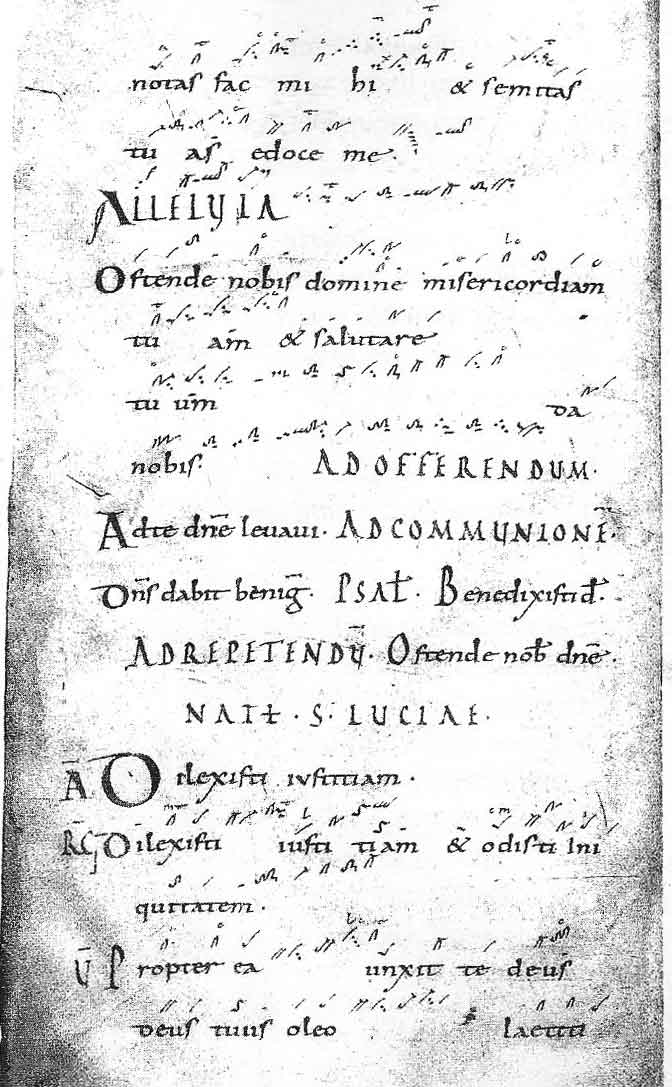 notas fac mi hi & semitas
tu as edoce me.
ALLELUIA
Ostende nobis domine misericordiam
tu am & salutare
tu um da
nobis. AD OFFERENDUM.
Adte dnē levavi. AD COMMUNIONĒ.
Dns̄ dabit benig̅. PSAL̵. Benedixisti d̵.
AD REPETENDŪ. Ostende nob̵ dnē.
NAT̵ . S . LUCIAE.
Ā Dilexisti iustitiam.
R̄G Dilexisti iusti tiam & odisti Ini
quitatem.
V̄ Propter ea unxit te deus
deus tuus oleo laetiti